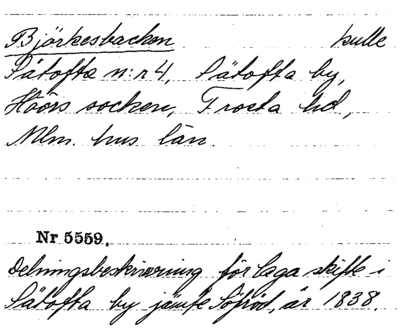 Björkesbacken kulle
Sätofta n:r 4, Sätofta by,
Höörs socken, Frosta hd,
Mlm. hus län.
Nr 5559.
Delningsbeskrivning för laga skifte i
Sätofta by jämte Sjöröd, år 1838.